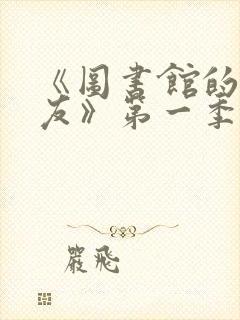 《圖書館的
友》第一季
嚴飛